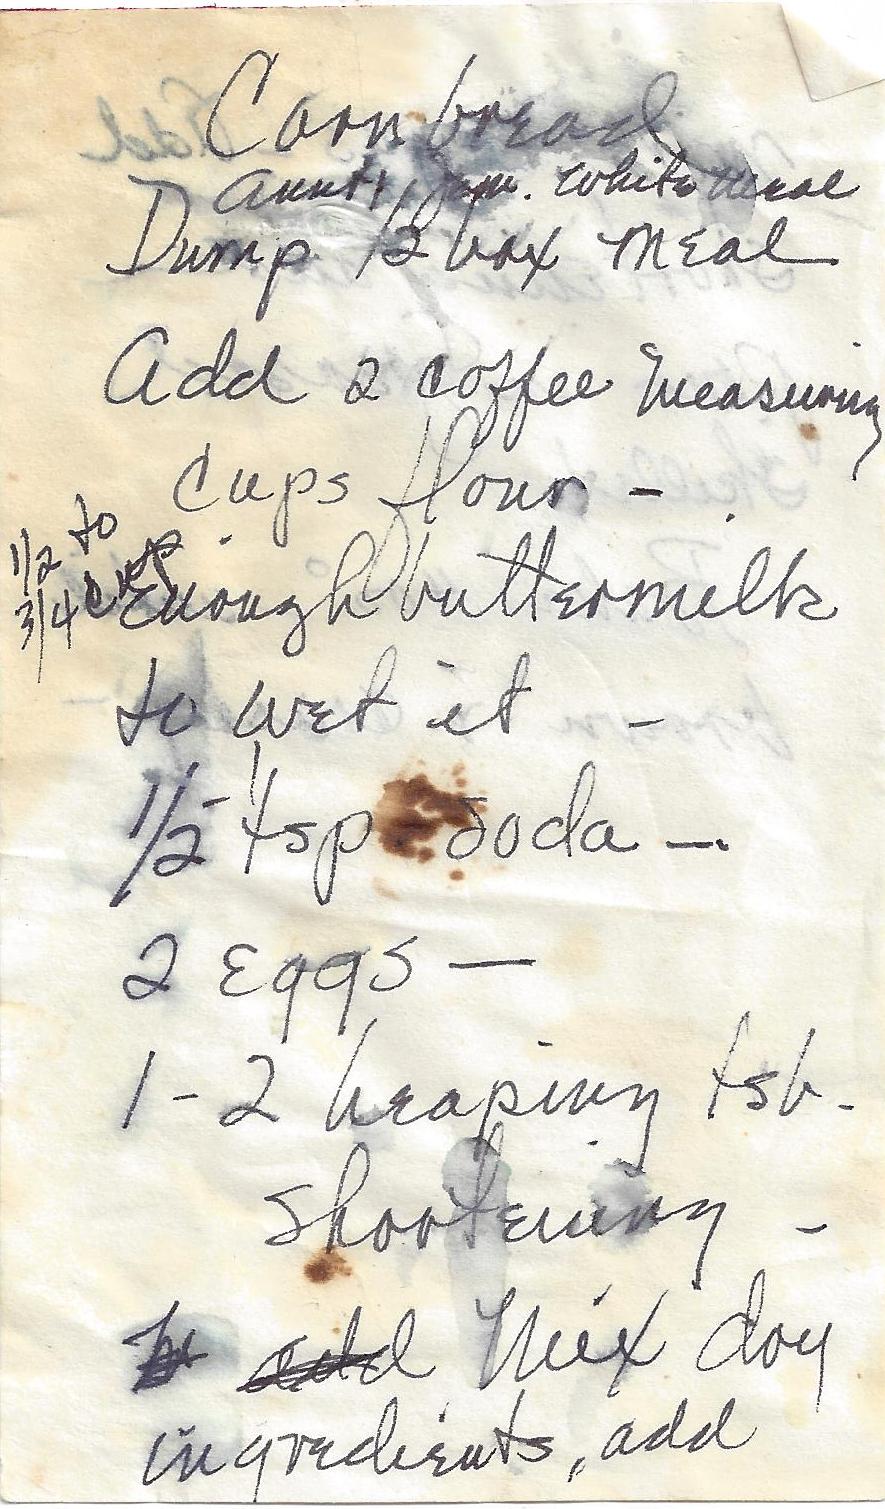 Cornbread
Aunt J Jem. White Meal
Dump 1/2 box Meal
Add 2 coffee measuring
cups flour -
1/2 to
3/4 cup
Enough buttermilk
to wet it -
1/2 tsp soda -
2 Eggs -
1-2 heaping tsb.
shortening -
add Mix dry
ingredients, add